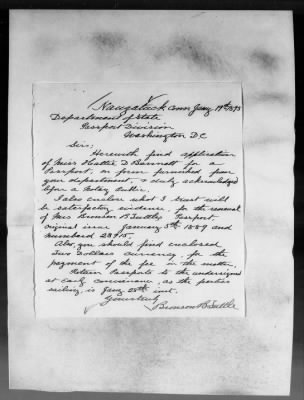 Naugatuck Conn Jany 19th 1893
Department of State
Passport Division
Washington D.C
Sirs;
Herewith find application
of Miss Hattie D Bennett for a
Passport, on form furnished from
your department, & duly acknowledged
before a Notary Public.
I also enclose what I trust will
be satisfactory evidence for the renewal
of Mrs Bronson B Tuttles Passport,
original issue January 5th 1889 and
numbered 28915.
Also you should find enclosed
Two Dollars currency for the
payment of the fee in the matter,
Return Passports to the undersigned
at Early convenience, as the parties
sailing is Jany 28th inst.
Yours truly
Bronson B Tuttle